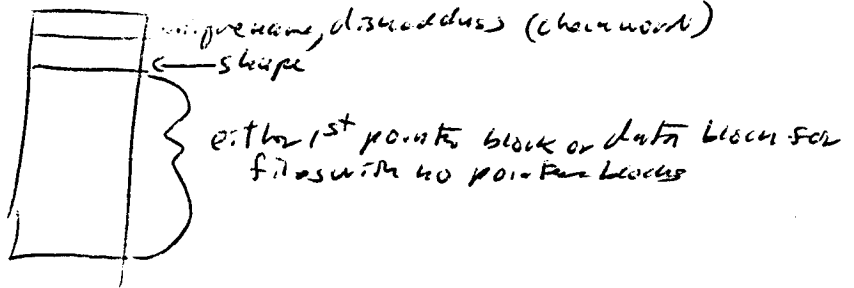 unique name, disk address (check word)
← shape
either 1st pointer block or data block for
files with no pointer blocks